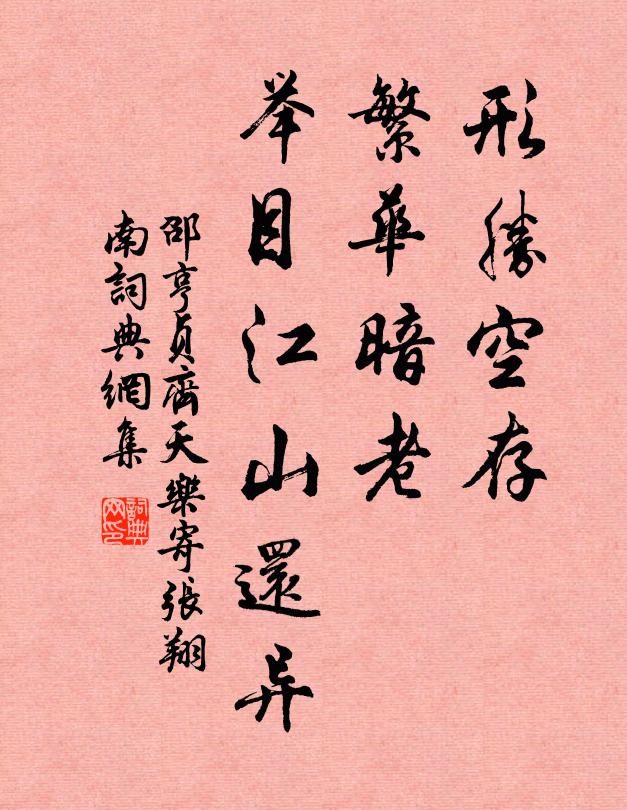 形勝空存
繁華暗老
举目江山還异
邵亨貞齊天樂寄張翔
南詞典網集
詞典
网印